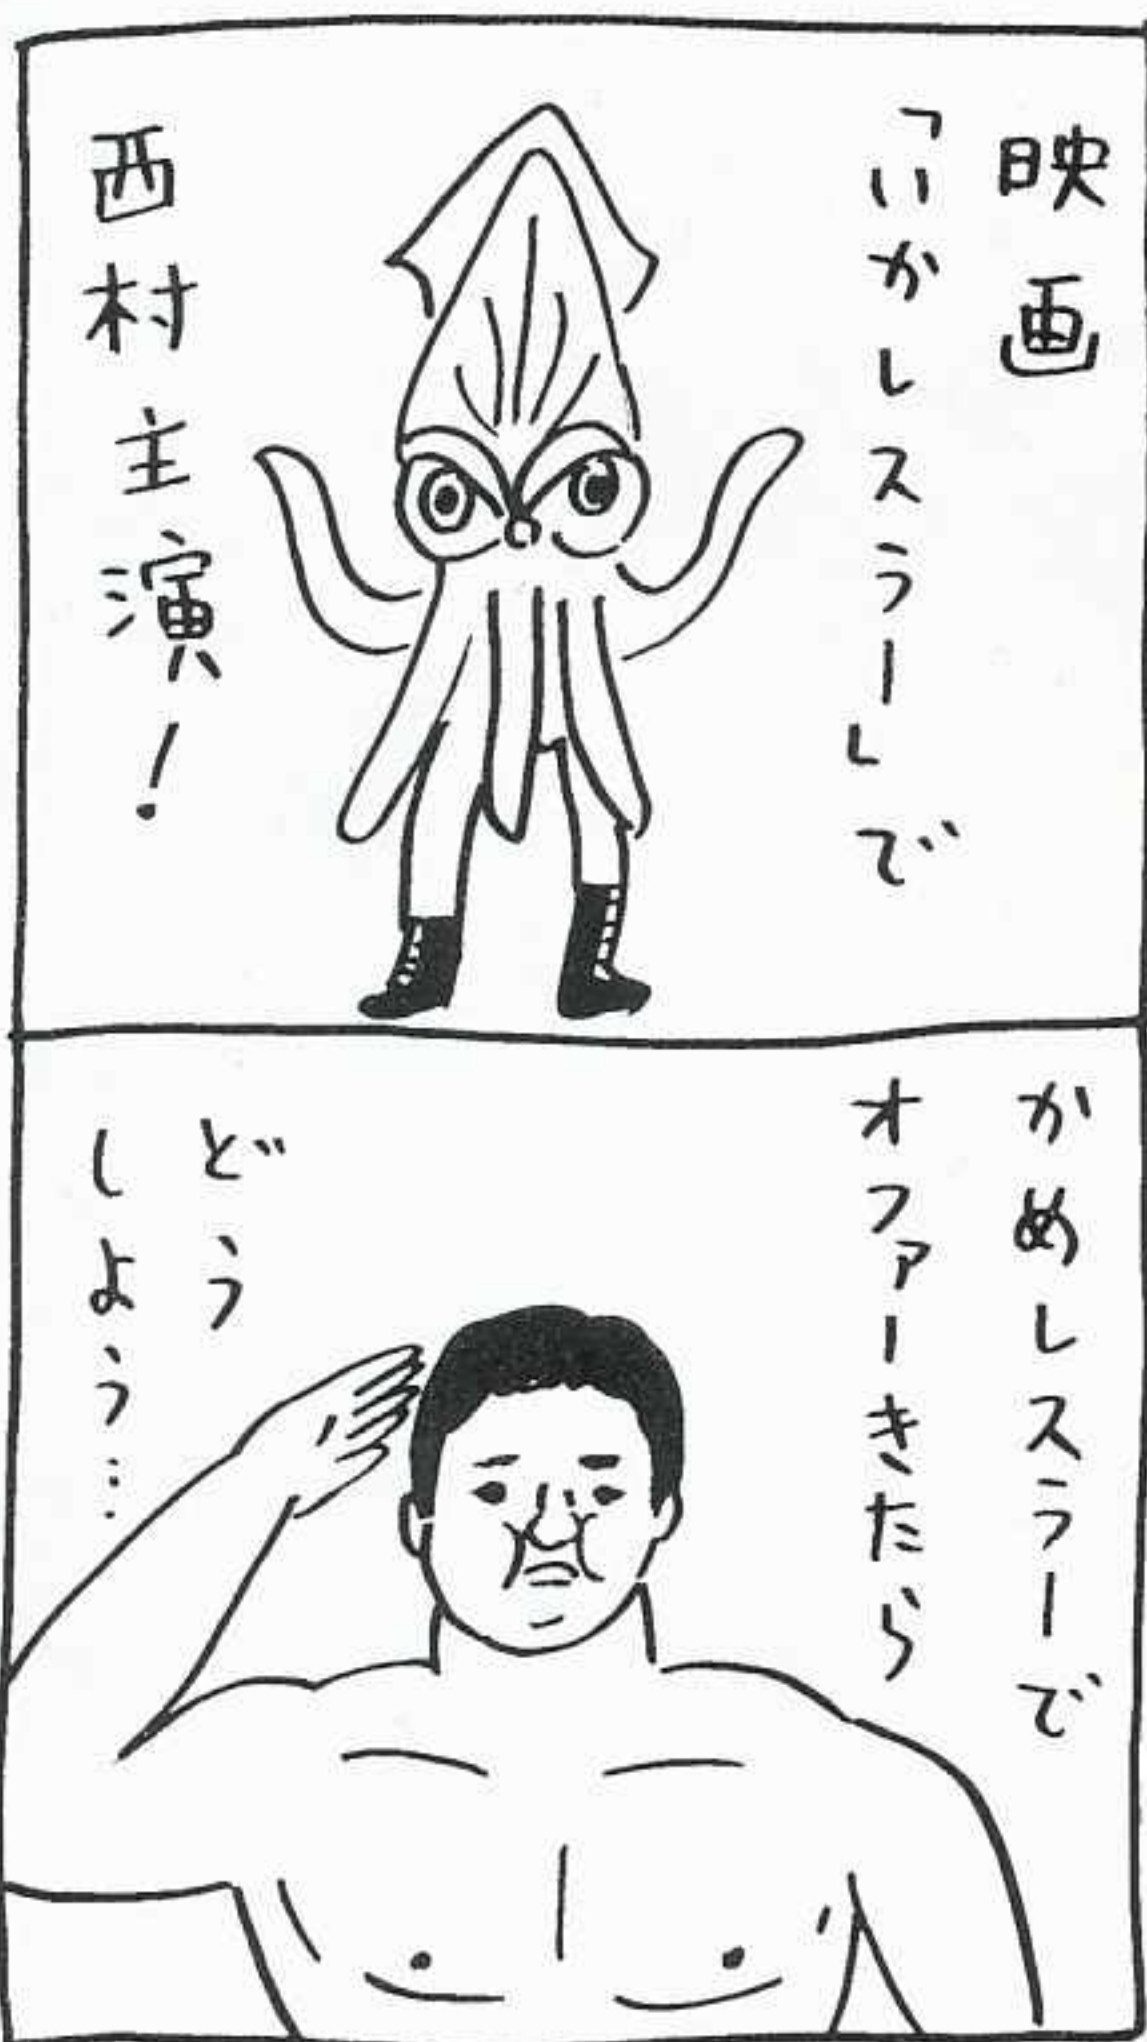 映画
「いかレスラー」で
西村主演！
かめレスラーで
オファーきたら
どう
しよう…